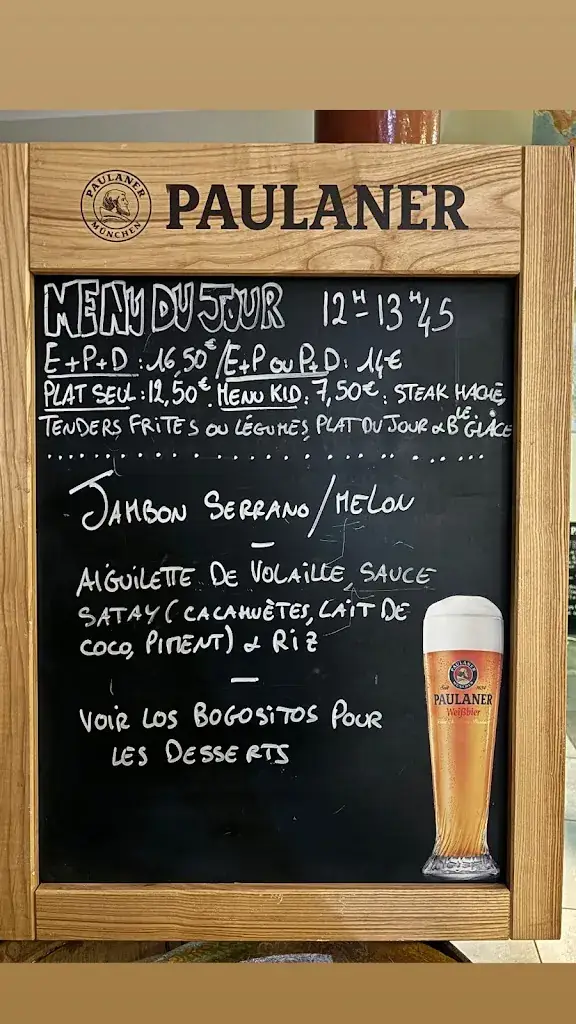 PAULANER
MÜNCHEN
PAULANER
MENU DU JOUR 12H-13H45
E+P+D : 16,50€ / E+P OU P+D : 14€
PLAT SEUL : 12,50€. MENU KID : 7,50€ : STEAK HACHÉ,
TENDERS FRITES OU LÉGUMES, PLAT DU JOUR & BLE GLACE
JAMBON SERRANO / MELON
AIGUILETTE DE VOLAILLE, SAUCE
SATAY (CACAHUÈTES, LAIT DE
COCO, PIMENT) & RIZ
VOIR LOS BOGOSITOS POUR
LES DESSERTS
PAULANER
Weißbier